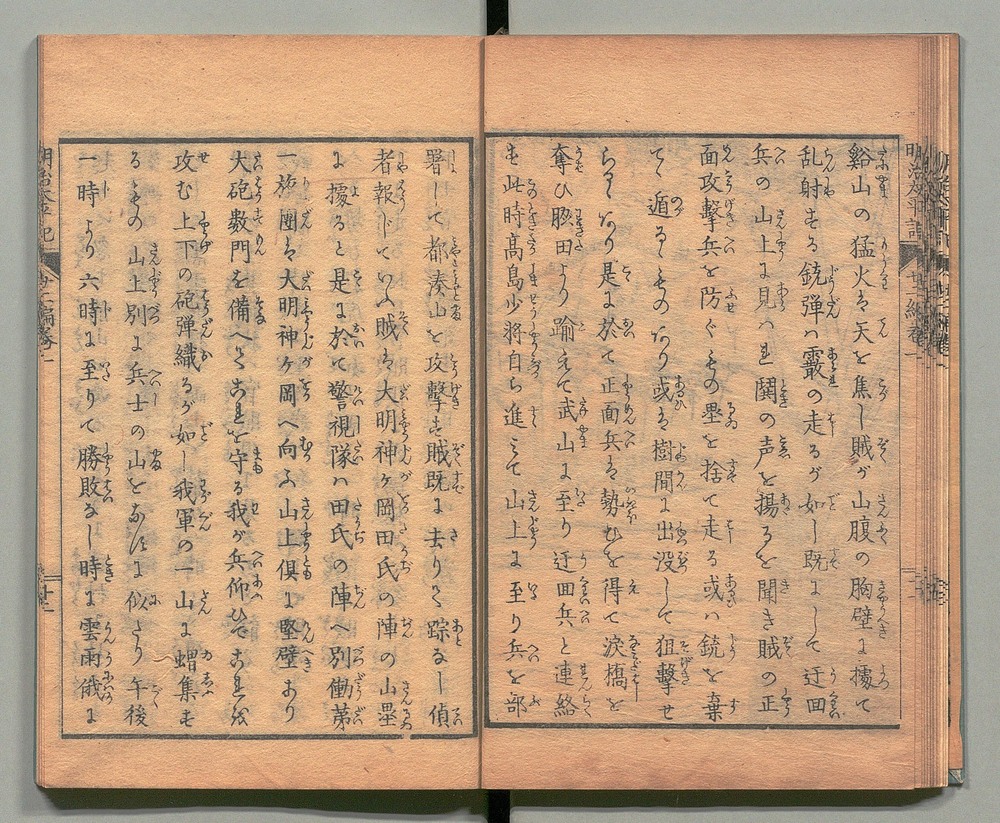 谿山の猛火は天を焦し賊が山腹の胸壁に據て
乱射する銃弾は霰の走るが如し既にして迂回
兵の山上に見はれ鬨の声を揚るを聞き賊の正
面攻撃兵を防ぐもの塁を捨て走る或は銃を棄
て遁るゝものあり或は樹間に出没して狙撃せ
らるゝあり是に於て正面兵は勢ひを得て涙橋を
奪ひ脇田より踰えて武山に至り迂回兵と連絡
す此時高島少将自ら進みて山上に至り兵を部
署して都湊山を攻撃す賊既に去りて踪なし偵
者報じていふ賊は大明神ヶ岡田氏の陣の山塁
に據ると是に於て警視隊は田氏の陣へ別働第
一旅團は大明神ヶ岡へ向ふ山上倶に堅壁あり
大砲数門を備へてこれを守る我が兵仰ひでこれを
攻む上下の砲弾織るが如し我軍の一山に蝟集す
るもの山上別に兵士の山をなすに似たり午後
一時より六時に至りて勝敗なし時に雲雨俄に
明治太平記